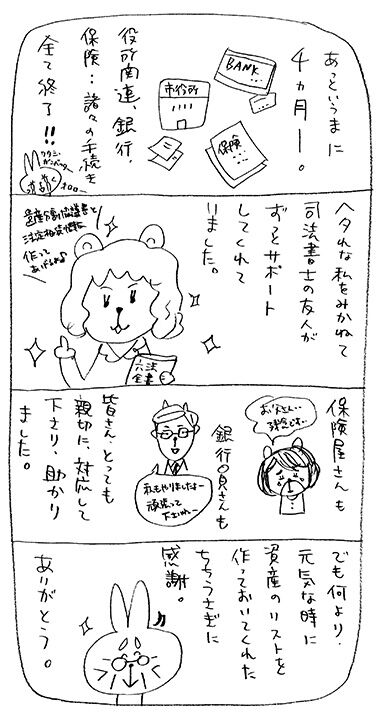 あっというまに
4ヵ月ー。
BANK
市役所
保険
役所関連、銀行、
保険…諸々の手続き
全て終了!!
ワタシ
ガンバッター
オロロー
遺産分割協議書と
法定相続情報
作って
あげるよ♪
ヘタれな私をみかねて
司法書士の友人が
ずっとサポート
してくれて
いました。
六法
全書
保険屋さんも
お父さん…
残念です…
銀行員さんも
私もやりましたよー
頑張って
下さいねー
皆さん、とっても
親切に、対応して
下さり、助かり
ました。
でも何より、
元気な時に
資産のリストを
作っておいてくれた
ちちうさぎに
感謝。
ありがとう。